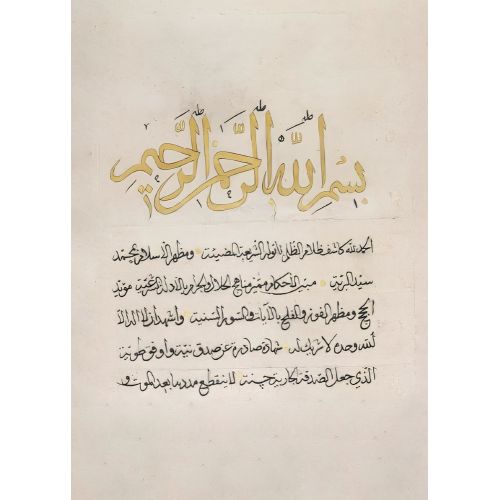 بسم الله الرحمن الرحيم
الحمد لله كاشف ظلام الظلم بانوار الشريعة المضيئة ومظهر الاسلام بمحمد
سيد البرية مبين الاحكام ومميز مناهج الحلال والحرام بالادلة الشرعية مؤيد
الحج ومظهر الفوز والفلح بالآيات والسور السنية واشهد ان لا اله الا
الله وحده لا شريك له شهادة صادرة عن صدق نية واوفى طوية
الذي جعل الصدقة الجارية جنة لا ينقطع مددها بعد الموت و